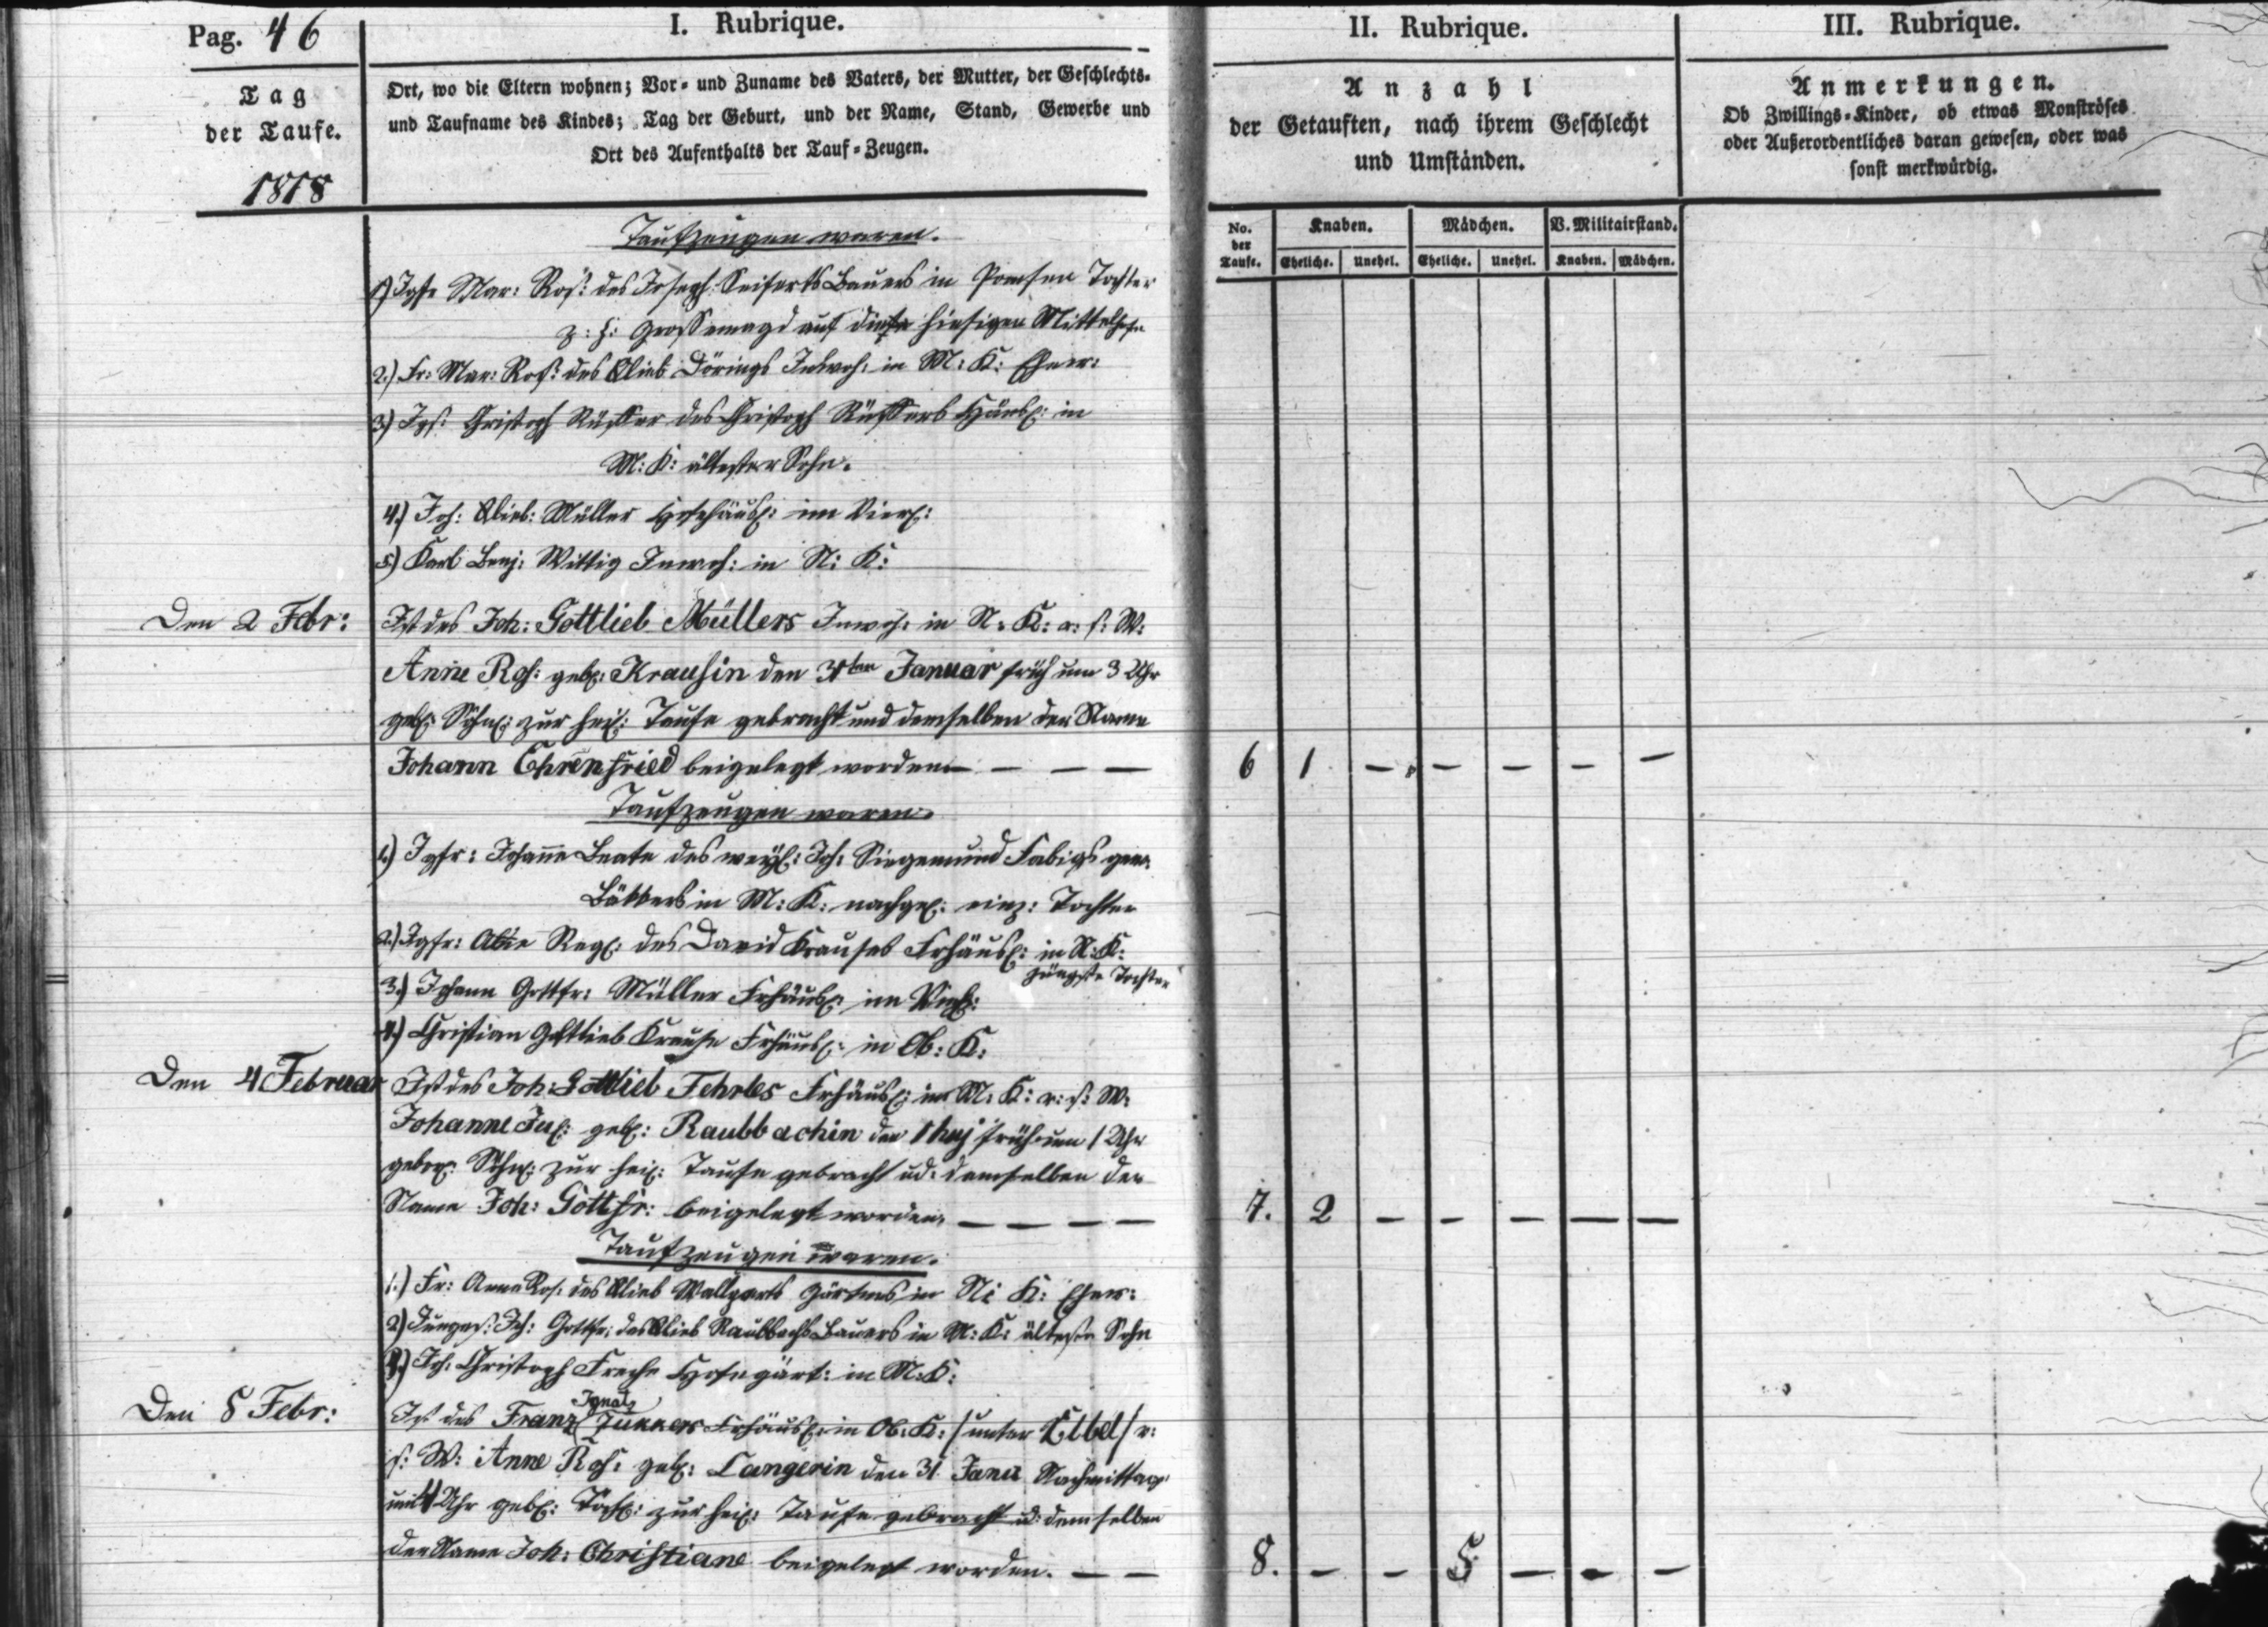 Pag. 46
I. Rubrique.
II. Rubrique.
III. Rubrique.
Tag
der Taufe.
1818
Ort, wo die Eltern wohnen; Vor- und Zuname des Vaters, der Mutter, der Geschlechts-
und Taufname des Kindes; Tag der Geburt, und der Name, Stand, Gewerbe und
Ort des Aufenthalts der Tauf-Zeugen.
Anzahl
der Getauften, nach ihrem Geschlecht
und Umständen.
Anmerkungen.
Ob Zwillings-Kinder, ob etwas Monströses
oder Außerordentliches daran gewesen, oder was
sonst merkwürdig.
No. der Taufe.
Knaben. Mädchen. V. Militairstand.
Eheliche. Unehel. Eheliche. Unehel. Knaben. Mädchen.
Taufzeugen waren.
1) Jgfr Mar: Ros: des Joseph Seiferts Bauers in Pomsen Tochter
z: Z: Grossemagd auf hiesigen Mittelhofe
2.) Fr: Mar: Ros: des Glieb Dörings Inwoh: in M: K: Ehew:
3) Jgs: Christoph des Christoph Häusl: in
M: K: ältester Sohn.
4.) Joh: Glieb: Müller Hofehäusl: im
5) Karl Benj: Wittig Inwoh: in N: K:
Den 2 Febr:
Ist des Joh: Gottlieb Müllers Inwoh: in N. K: s: W:
Anne Ros: geb: Krausin den 31ten Januar früh um 3 Uhr
geb: Söhnl: zur heil: Taufe gebracht und demselben der Name
Johann Ehrenfried beigelegt worden — — — —
6 1 — — — — —
Taufzeugen waren.
1.) Jgfr: Johanne Beate des weyl: Joh: Siegemund Fabigs gew.
Bäkkers in M: K: nachgel: einz: Tochter
2.) Jgfr: Regl: des David Krauses Frhäusl: in N: K:
jüngste Tochter
3.) Johann Gottfr: Müller Frhäusl: im
4.) Christian Gottlieb Krause Frhäusl: in Ob: K:
Den 4 Februar
Ist des Joh: Gottlieb Fehrles Frhäusl: in M: K: v: s: W:
Johanne Jul: geb: Raubbachin den 1 huj früh um 1 Uhr
gebor: Söhnl: zur heil: Taufe gebracht ud: demselben der
Name Joh: Gottfr: beigelegt worden. — — — —
7. 2 — — — — —
Taufzeugen waren.
1.) Fr: Anna Ros: des Glieb Gärtners in N: K: Ehew:
2) Jungges: Joh: Gottfr: des Glieb Raubbachs Bauers in M: K: älteste Sohn
3.) Joh: Christoph Hofegärt: in M: K:
Den 8 Febr:
Ignatz
Ist des Franz Junkers Frhäusl: in Ob: K: /unter v:
s: W: Anne Ros: geb: Langerin den 31 Janu Nachmittag
um 4 Uhr geb: Töchl: zur heil: Taufe gebracht ud: demselben
der Name Joh: Christiane beigelegt worden. — —
8. — — 5 — — —